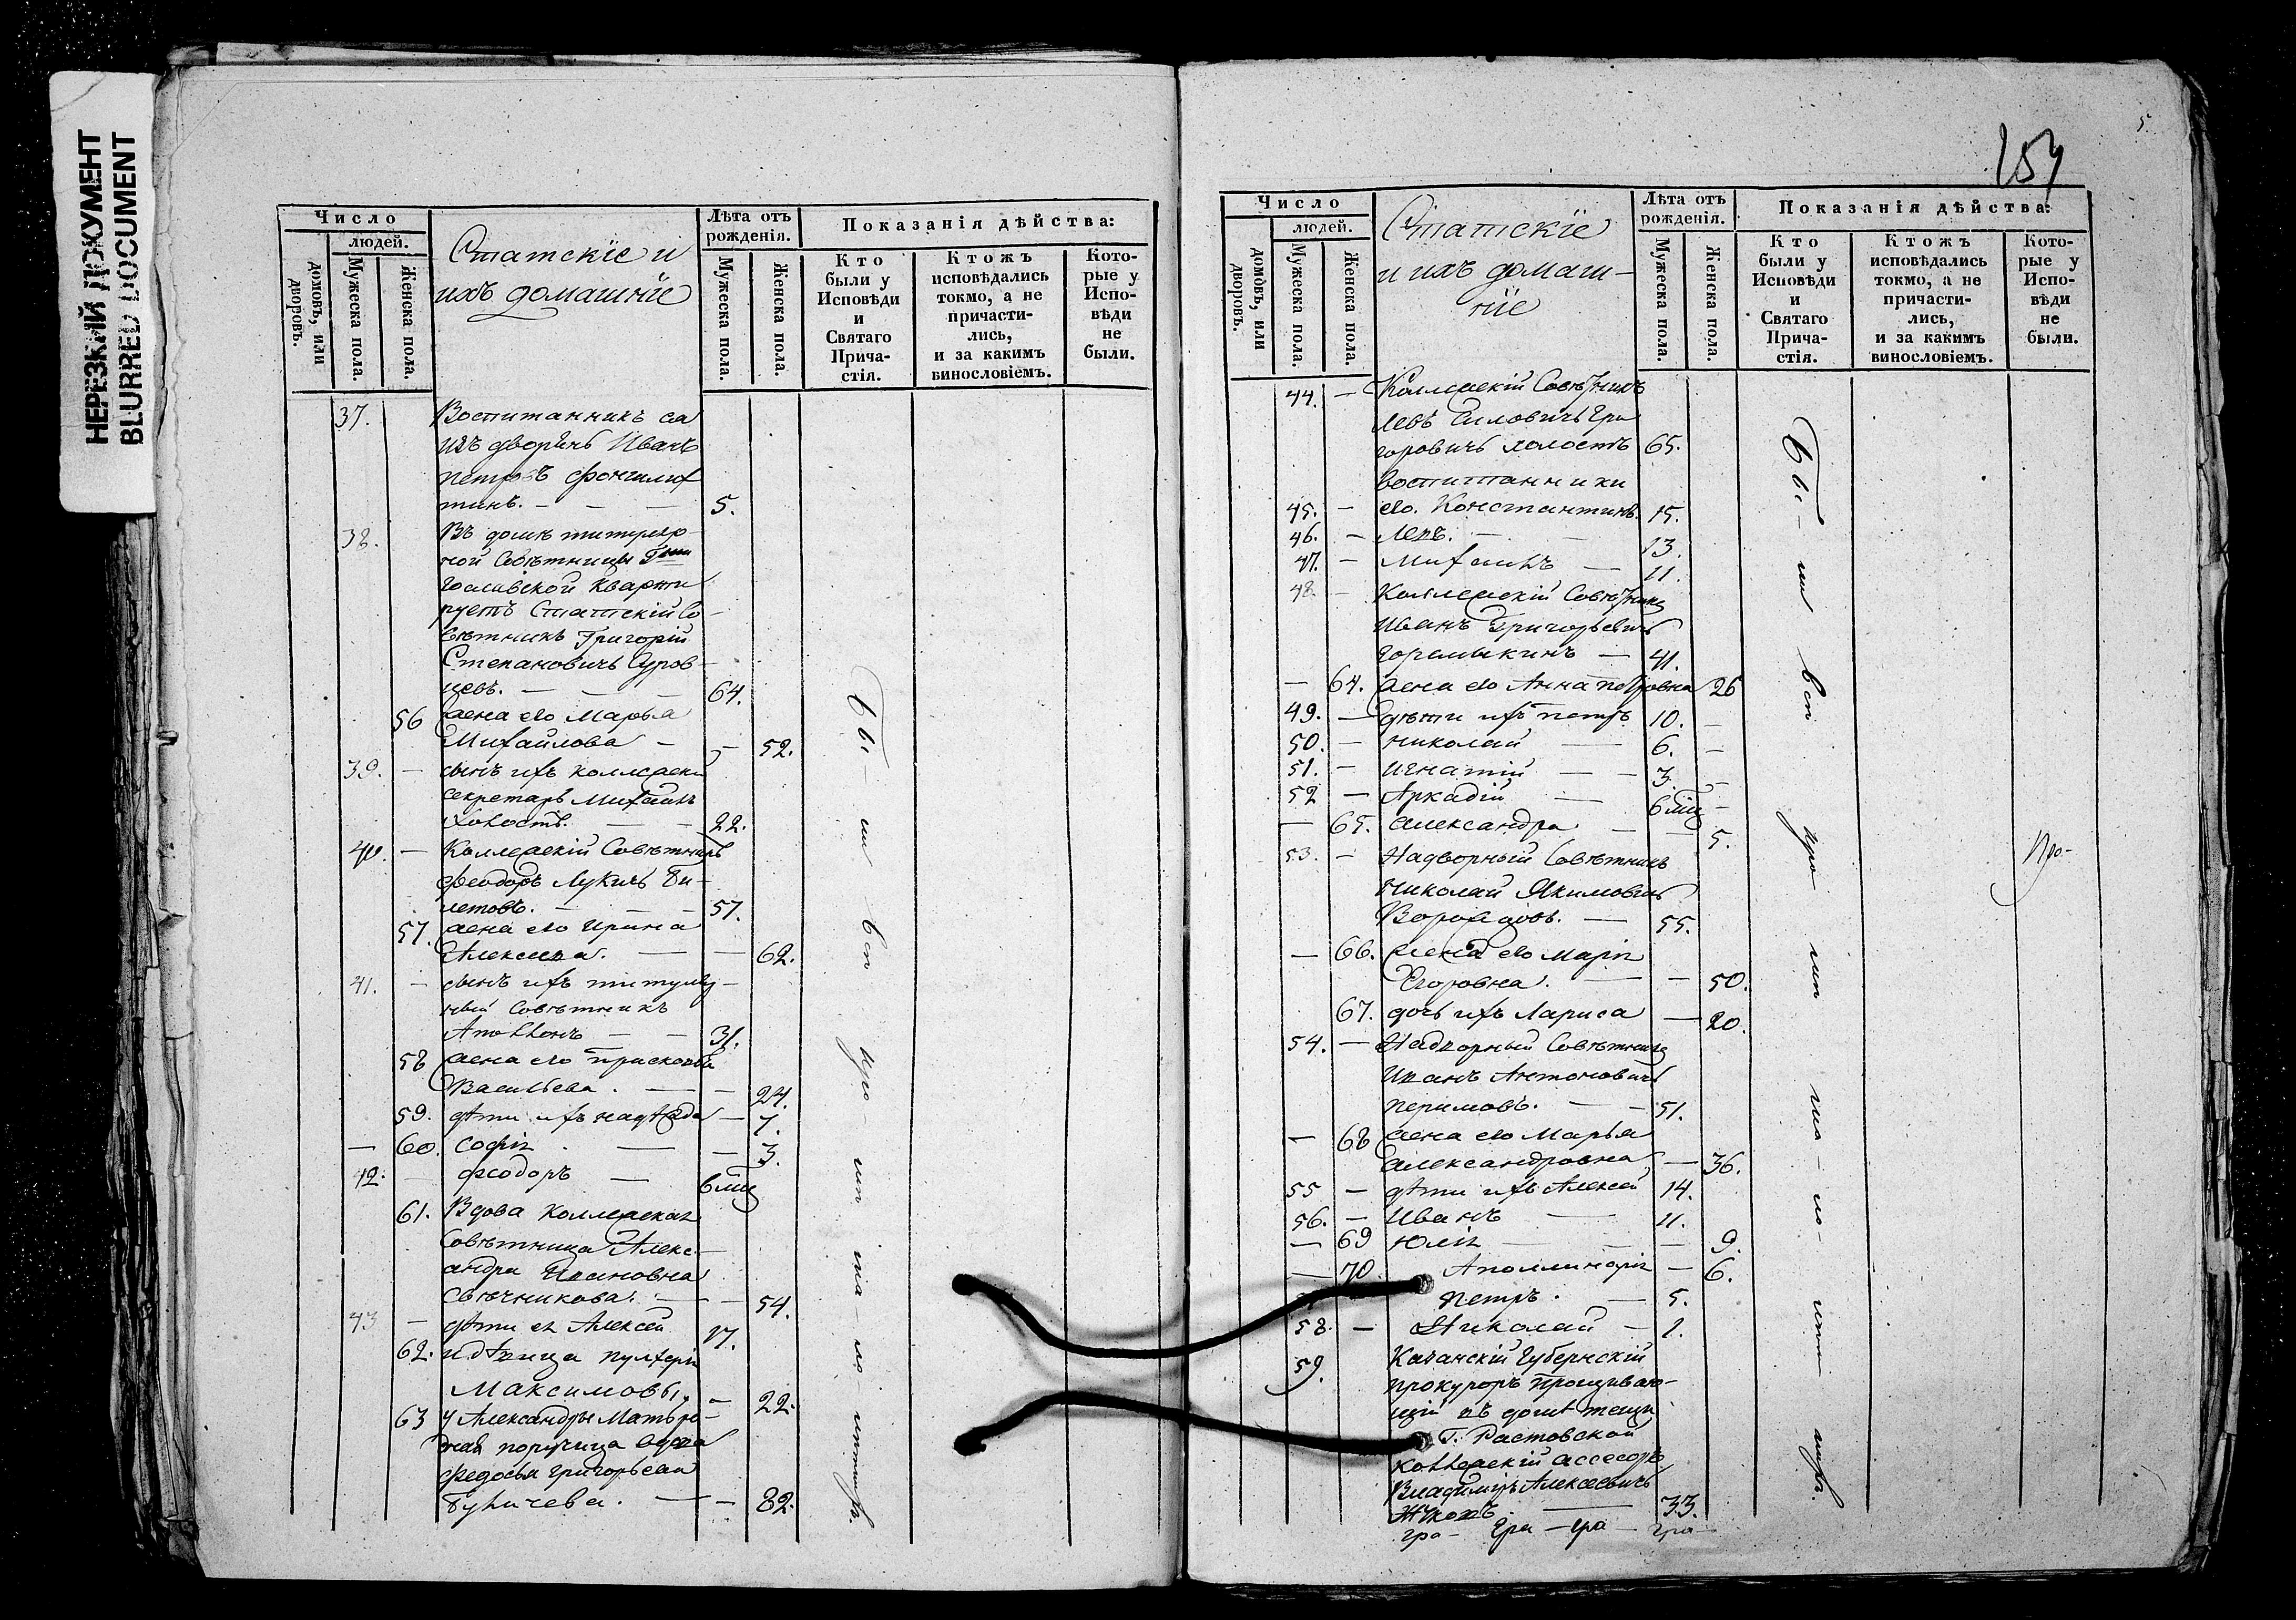 НЕРЕЗКИЙ ДОКУМЕНТ
BLURRED DOCUMENT
Число
людей.
домовъ, или дворовъ.
Мужеска пола.
Женска пола.
Статскіе и
ихъ домашніе
Лѣта отъ рожденія.
Мужеска пола.
Женска пола.
Показанія дѣйства:
Кто были у Исповѣди и Святаго Прича-стія.
Ктожъ исповѣдались токмо, а не причасти-лись, и за какимъ винословіемъ.
Кото-рые у Испо-вѣди не были.
37. Воспитанникъ ея
изъ дворянъ Иванъ
Петровъ
5.
38. Въ домѣ титуляр
ной Совѣтницы
кварти
руетъ Статскій Со
вѣтникъ Григорій
Степановичъ Суров
цевъ. — 64.
56 жена его Марья
Михайлова — — 52.
39. — сынъ ихъ коллежскій
секретарь Михаилъ
холостъ. — 22.
40. — Коллежскій Совѣтникъ
Феодоръ Лукичъ Би-
летовъ. — 57.
57. жена его Ирина
Алексеева. — — 62.
41. — сынъ ихъ титуляр
ный Совѣтникъ
Аполлонъ — 31.
58 жена его Прасковья
Васильева. — — 24.
59. дѣти ихъ Надежда — 7.
— 60. Софія — — 3.
42. — Феодоръ — 6 мѣц
61. Вдова Коллежская
Совѣтница Алекс-
андра Ивановна
Свѣчникова. — — 54.
43 — дѣти ея Алексей 17.
62. и дѣвица Пулхерія
Максимовы. — 22.
63 у Александры Мать ро-
дная порутчица вдова
Федосья Григорьева
— — 82.
Бы-ли вси
154
5.
Число
людей.
домовъ, или дворовъ.
Мужеска пола.
Женска пола.
Статскіе
и ихъ домаш-
ніе
Лѣта отъ рожденія.
Мужеска пола.
Женска пола.
Показанія дѣйства:
Кто были у Исповѣди и Святаго Прича-стія.
Ктожъ исповѣдались токмо, а не причасти-лись, и за какимъ винословіемъ.
Кото-рые у Испо-вѣди не были.
44. — Коллежскій Совѣтникъ
Левъ Силовичъ Гри
горовичъ холостъ 65.
воспитанники
45. — его Константинъ. 15.
46. — Левъ. — 13.
47. — Михаилъ — 11.
48 — Коллежскій Совѣтникъ
Иванъ Григорьевичъ
Горемыкинъ — 41.
— 64. жена его Анна Петровна 26
49. — дѣти ихъ Петръ 10. —
50. — Николай — 6. —
51. — Игнатій — 3. —
52 — Аркадій — 6 мѣц —
— 65. Александра — 5.
53. — Надворный Совѣтникъ
Николай Якимовичъ
— 55.
— 66. жена его Марія
Егоровна. — — 50.
67. дочь ихъ Лариса — 20.
54. — Надворный Совѣтникъ
Иванъ Антоновичъ
Перимовъ. — 51.
— 68 жена его Марья
Александровна — 36.
55 — дѣти ихъ Алексей 14.
56. — Иванъ — 11.
— 69 Юлія — — 9.
— 70 Аполлинарія — 6.
Петръ. — 5.
58. — Николай — 1.
59. Казанскій Губернскій
Прокуроръ проживаю-
щій въ домѣ тещи
Г. Растовской
коллежскій ассесоръ
Владимиръ Алексеевичъ
— 33.
Бы-ли вси